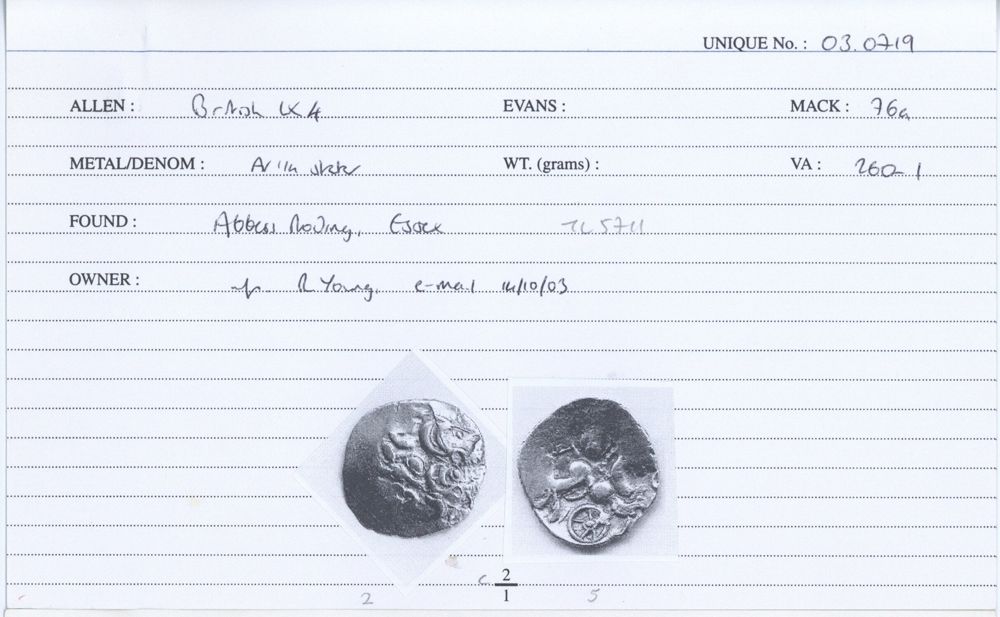 UNIQUE No. : 03.0719
ALLEN : British LX4 EVANS : MACK : 76a
METAL/DENOM : AV 1/4 stater WT. (grams) : VA : 260-1
FOUND : Abbess Roding, Essex TL 5711
OWNER : R Young, e-mail 14/10/03
c 2/1
2 5